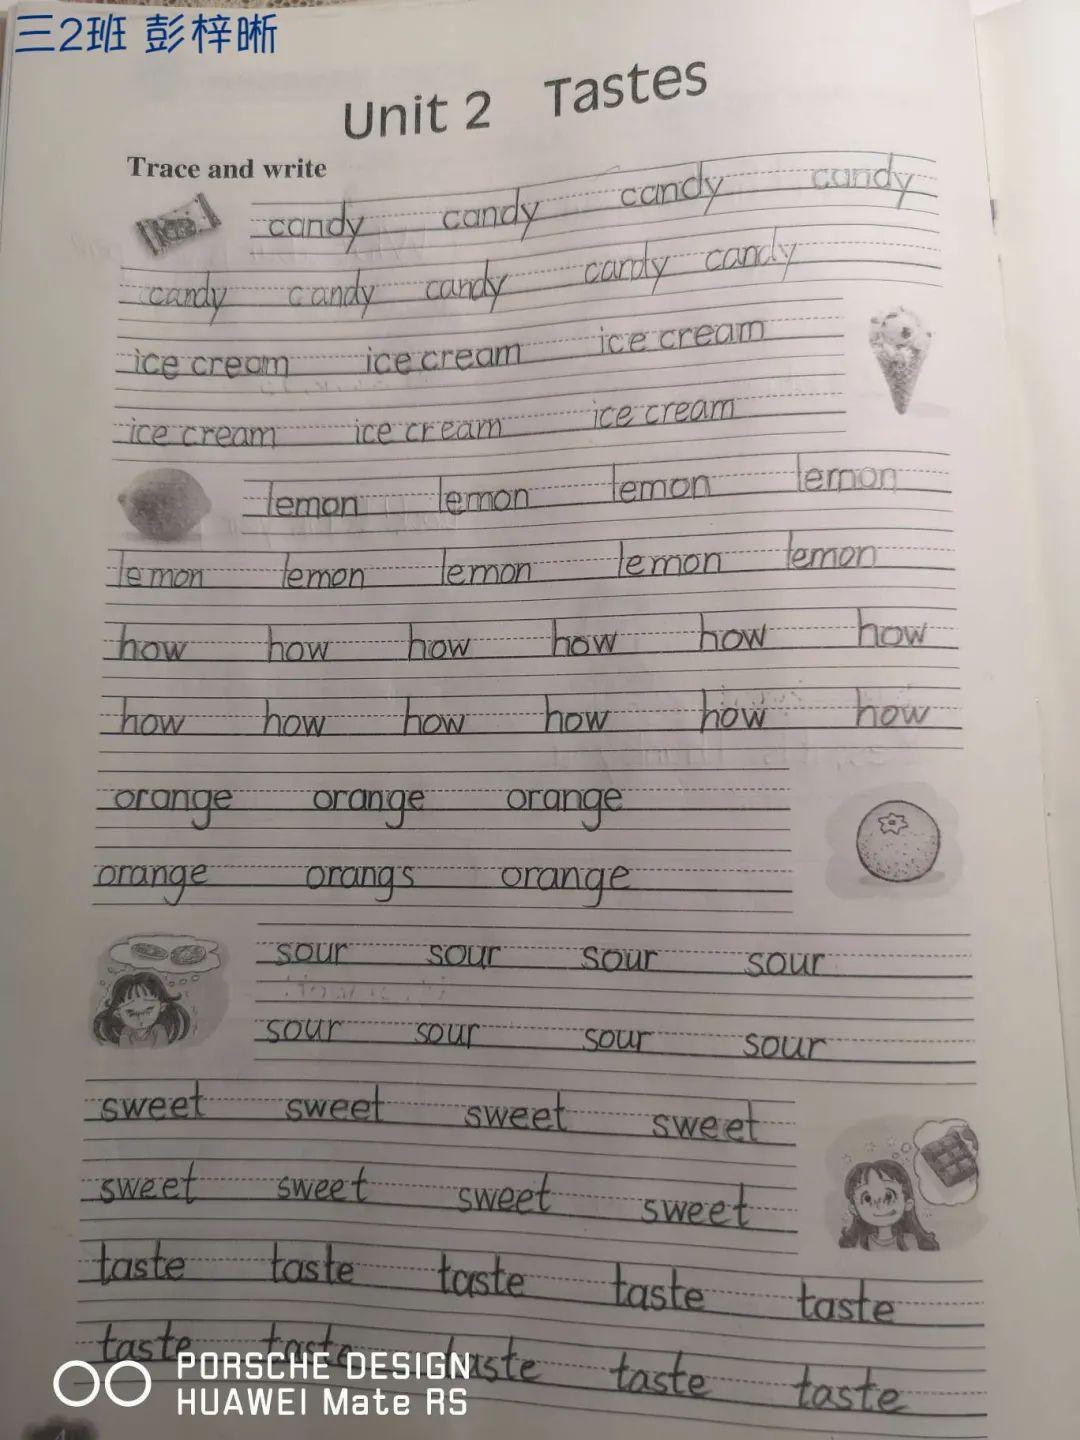 三2班 彭梓晰
Unit 2 Tastes
Trace and write
candy candy candy candy
candy candy candy candy candy
ice cream ice cream ice cream
ice cream ice cream ice cream
lemon lemon lemon lemon
lemon lemon lemon lemon lemon
how how how how how how
how how how how how how
orange orange orange
orange orangs orange
sour sour sour sour
sour sour sour sour
sweet sweet sweet sweet
sweet sweet sweet sweet
taste taste taste taste taste
taste taste taste taste taste
PORSCHE DESIGN
HUAWEI Mate RS